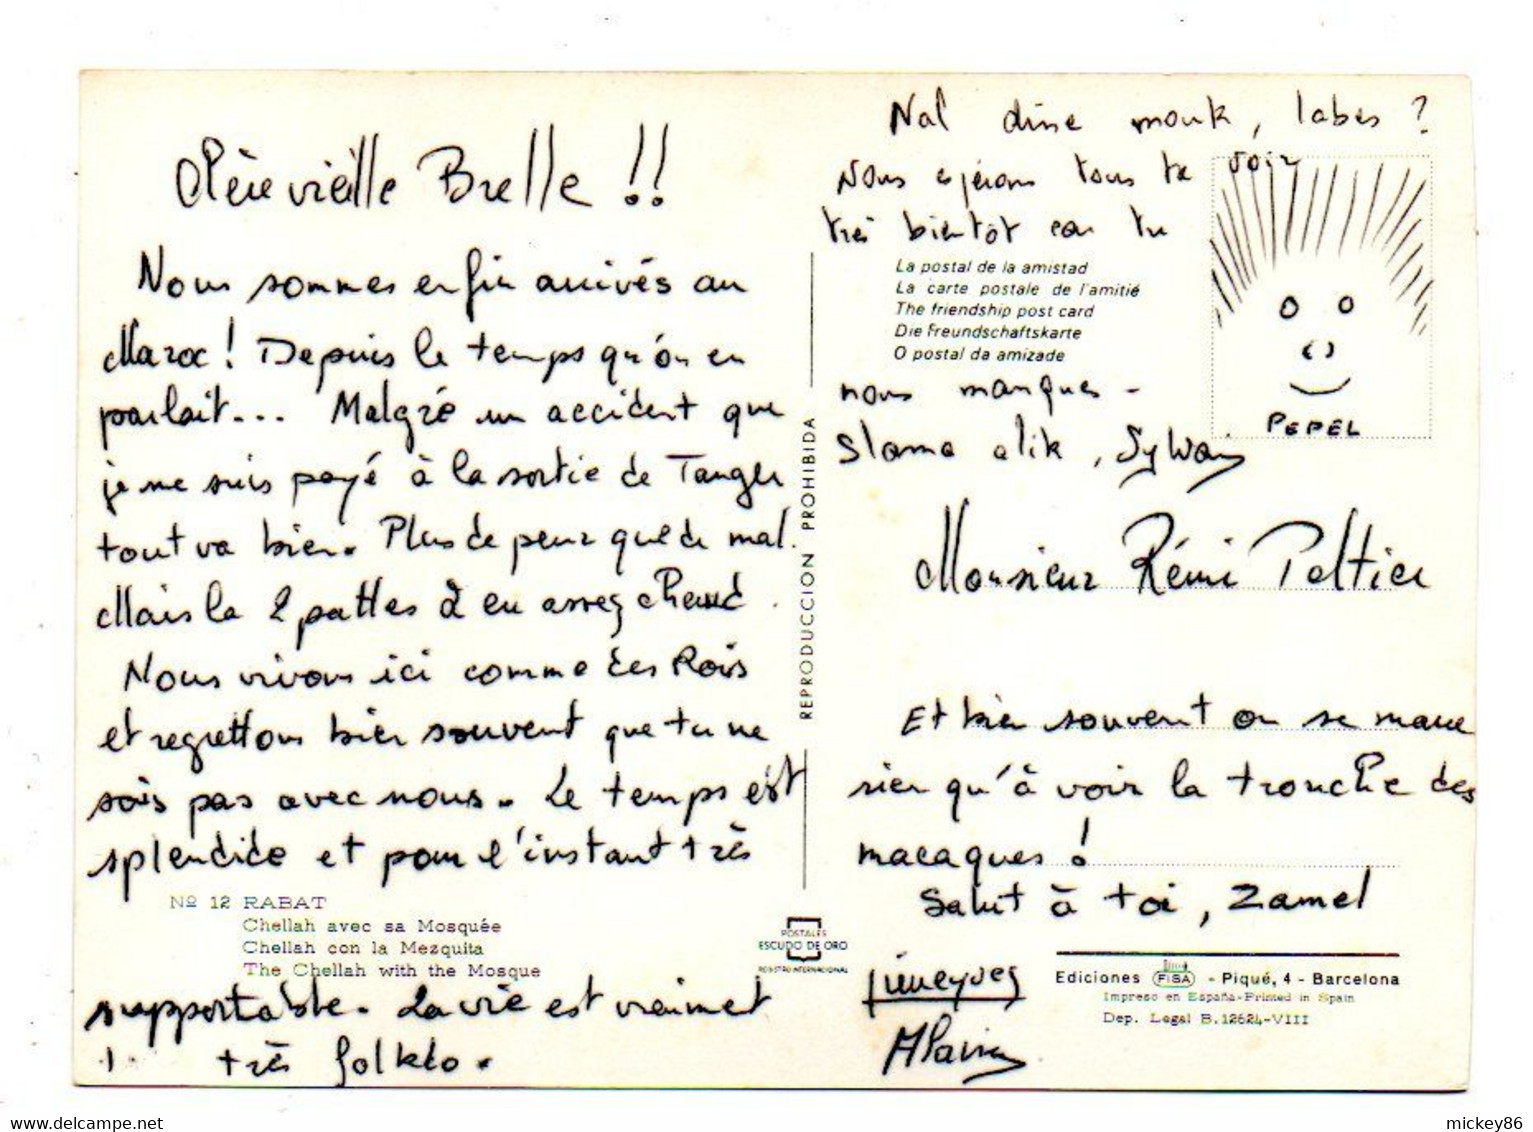 Chère vieille Brelle !!
Nous sommes enfin arrivés au
Maroc ! Depuis le temps qu'on en
parlait... Malgré un accident que
je me suis payé à la sortie de Tanger
tout va bien. Plus de peur que de mal.
Mais la 2 pattes à eu assez chaud.
Nous vivons ici comme des Rois
et regrettons bien souvent que tu ne
sois pas avec nous. Le temps est
splendide et pour l'instant très
Nº 12 RABAT
Chellah avec sa Mosquée
Chellah con la Mezquita
The Chellah with the Mosque
supportable. La vie est vraimet
très folklo.
REPRODUCCION PROHIBIDA
POSTALES
ESCUDO DE ORO
REGISTRO INTERNACIONAL
Nal dine mouk, labes ?
Nous espérons tous te voir
très bientôt car tu
La postal de la amistad
La carte postale de l'amitié
The friendship post card
Die Freundschaftskarte
O postal da amizade
nous manques -
Slama alik, Sylvain
PEPEL
Monsieur Rémi Peltier
Et bien souvent on se marre
rien qu'à voir la tronche des
macaques !
Salut à toi, Zamel
Alain
Ediciones FISA - Piqué, 4 - Barcelona
Impreso en España-Printed in Spain
Dep. Legal B. 12624-VIII
mickey86